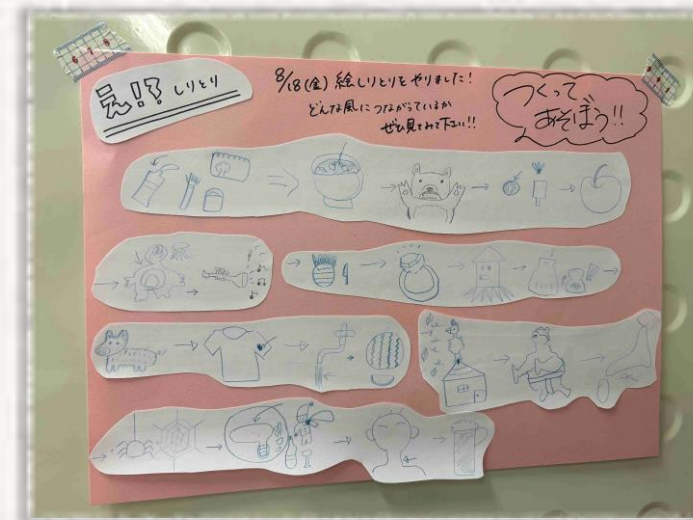 え!?しりとり
8/18(金)絵しりとりをやりました!
どんな風につながっているか
ぜひ見てみて下さい!!
つくって
あそぼう!!